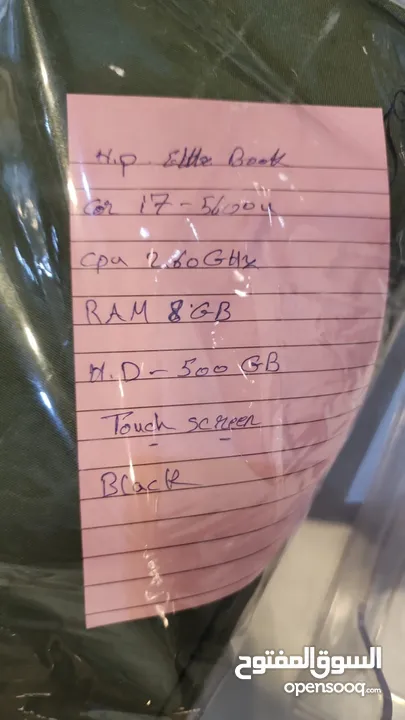 H.p. Elite Book
Cor i7 - 5600u
cpu 2.60GHz
RAM 8 GB
H.D - 500 GB
Touch screen
Black
السوق المفتوح
opensooq.com